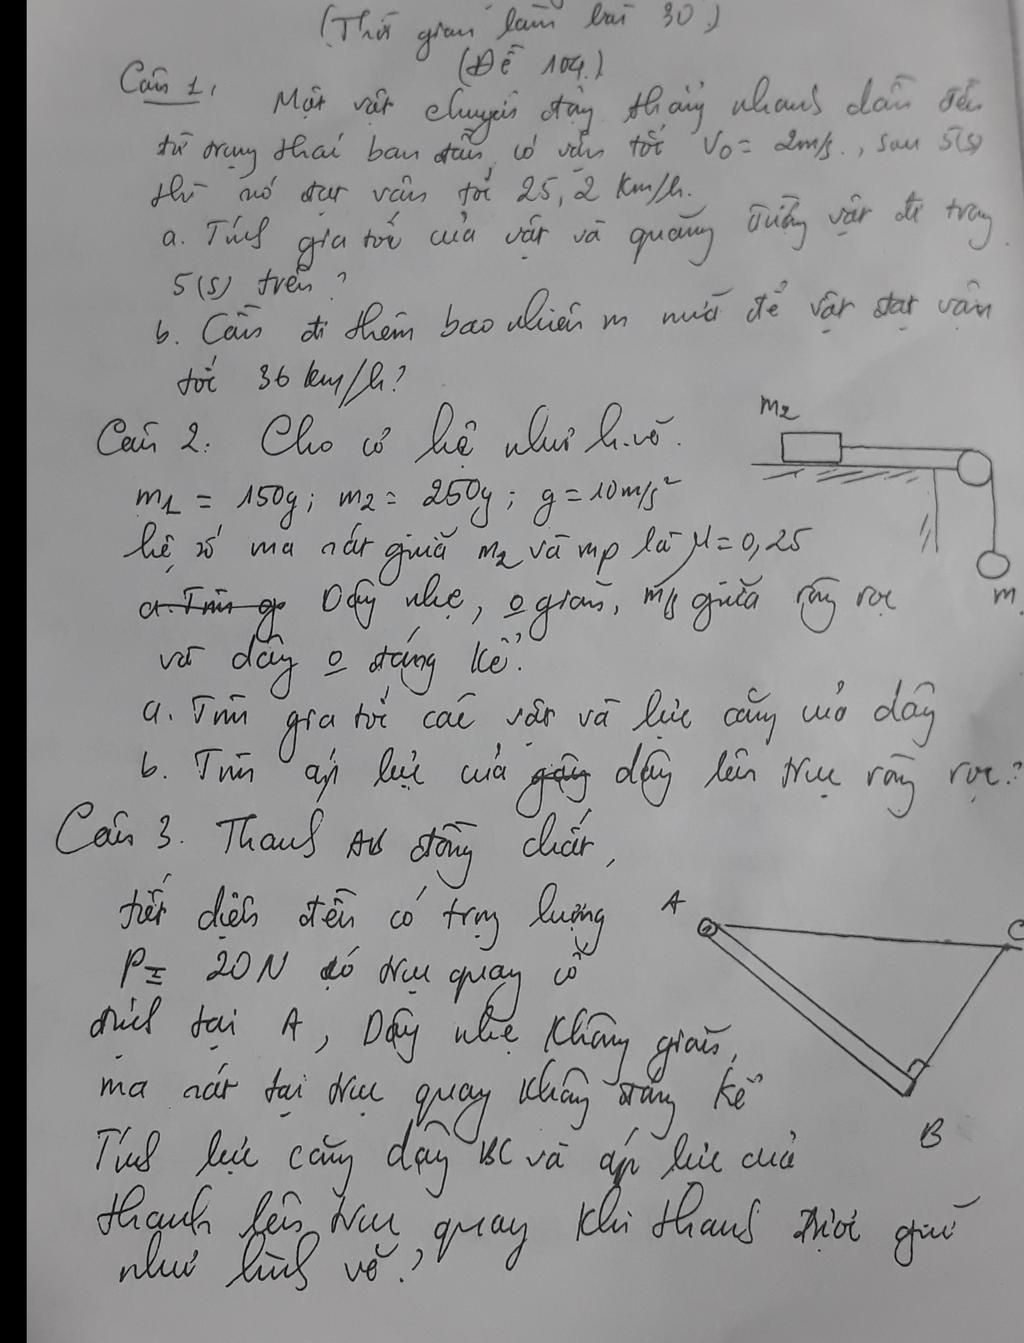 (Thời gian làm bài 30')
(Đề 104.)
Câu 1, Một vật chuyển động thẳng nhanh dần đều
từ trạng thái ban đầu có vận tốc V₀ = 2m/s., sau 5(s)
thì nó đạt vận tốc 25,2 km/h.
a. Tính gia tốc của vật và quãng đường vật đi trong
5(s) trên?
b. Cần đi thêm bao nhiêu m nữa để vật đạt vận
tốc 36 km/h?
Câu 2. Cho cơ hệ như h.vẽ.
m₁ = 150g; m₂ = 250g; g = 10m/s²
hệ số ma sát giữa m₂ và mp là μ = 0,25
Dây nhẹ, o giãn, ms giữa ròng rọc
và dây o đáng kể.
a. Tìm gia tốc các vật và lực căng của dây
b. Tìm áp lực của dây lên trục ròng rọc?
m₂
m₁
Câu 3. Thanh AB đồng chất,
tiết diện đều có trọng lượng
P = 20N có trục quay cố
định tại A, Dây nhẹ không giãn,
ma sát tại trục quay không đáng kể
Tính lực căng dây BC và áp lực của
thanh lên trục quay khi thanh được giữ
như hình vẽ?
A
C
B